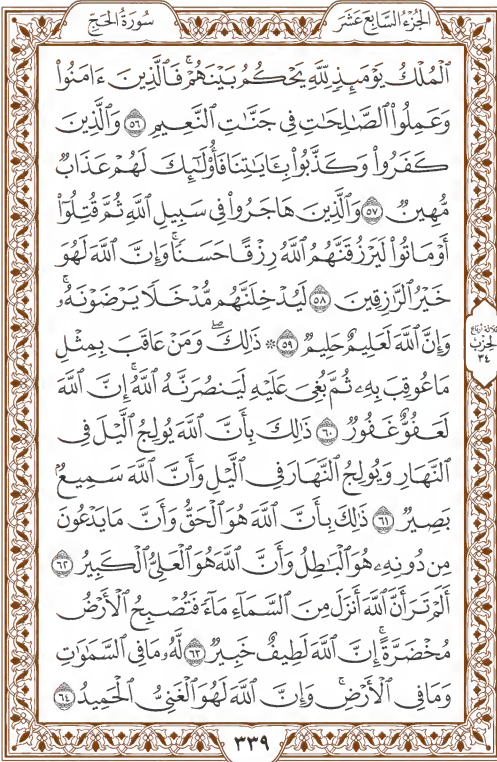 الجُزْءُ السَّابِعَ عَشَرَ
سُورَةُ الحَجِّ
ٱلْمُلْكُ يَوْمَئِذٍ لِّلَّهِ يَحْكُمُ بَيْنَهُمْۚ فَٱلَّذِينَ ءَامَنُوا۟
وَعَمِلُوا۟ ٱلصَّٰلِحَٰتِ فِى جَنَّٰتِ ٱلنَّعِيمِ ٥٦ وَٱلَّذِينَ
كَفَرُوا۟ وَكَذَّبُوا۟ بِـَٔايَٰتِنَا فَأُو۟لَٰٓئِكَ لَهُمْ عَذَابٌ
مُّهِينٌ ٥٧ وَٱلَّذِينَ هَاجَرُوا۟ فِى سَبِيلِ ٱللَّهِ ثُمَّ قُتِلُوٓا۟
أَوْ مَاتُوا۟ لَيَرْزُقَنَّهُمُ ٱللَّهُ رِزْقًا حَسَنًاۚ وَإِنَّ ٱللَّهَ لَهُوَ
خَيْرُ ٱلرَّٰزِقِينَ ٥٨ لَيُدْخِلَنَّهُم مُّدْخَلًا يَرْضَوْنَهُۥۚ
وَإِنَّ ٱللَّهَ لَعَلِيمٌ حَلِيمٌ ٥٩ ۞ ذَٰلِكَۖ وَمَنْ عَاقَبَ بِمِثْلِ
مَا عُوقِبَ بِهِۦ ثُمَّ بُغِىَ عَلَيْهِ لَيَنصُرَنَّهُ ٱللَّهُۚ إِنَّ ٱللَّهَ
لَعَفُوٌّ غَفُورٌ ٦٠ ذَٰلِكَ بِأَنَّ ٱللَّهَ يُولِجُ ٱلَّيْلَ فِى
ٱلنَّهَارِ وَيُولِجُ ٱلنَّهَارَ فِى ٱلَّيْلِ وَأَنَّ ٱللَّهَ سَمِيعٌۢ
بَصِيرٌ ٦١ ذَٰلِكَ بِأَنَّ ٱللَّهَ هُوَ ٱلْحَقُّ وَأَنَّ مَا يَدْعُونَ
مِن دُونِهِۦ هُوَ ٱلْبَٰطِلُ وَأَنَّ ٱللَّهَ هُوَ ٱلْعَلِىُّ ٱلْكَبِيرُ ٦٢
أَلَمْ تَرَ أَنَّ ٱللَّهَ أَنزَلَ مِنَ ٱلسَّمَآءِ مَآءً فَتُصْبِحُ ٱلْأَرْضُ
مُخْضَرَّةًۚ إِنَّ ٱللَّهَ لَطِيفٌ خَبِيرٌ ٦٣ لَّهُۥ مَا فِى ٱلسَّمَٰوَٰتِ
وَمَا فِى ٱلْأَرْضِۚ وَإِنَّ ٱللَّهَ لَهُوَ ٱلْغَنِىُّ ٱلْحَمِيدُ ٦٤
ثلاثة أرباع
الحِزْب
٣٤
٣٣٩